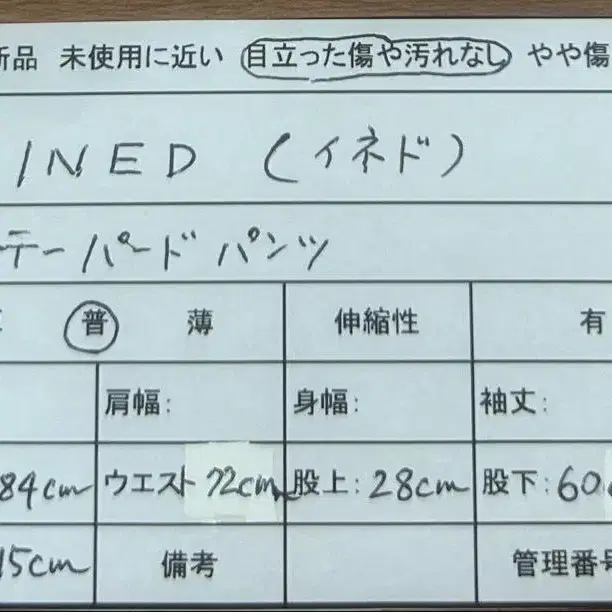 新品 未使用に近い 目立った傷や汚れなし やや傷
INED (イネド)
テーパードパンツ
普 薄 伸縮性 有
肩幅: 身幅: 袖丈:
84cm ウエスト 72cm 股上: 28cm 股下: 60
15cm 備考 管理番号